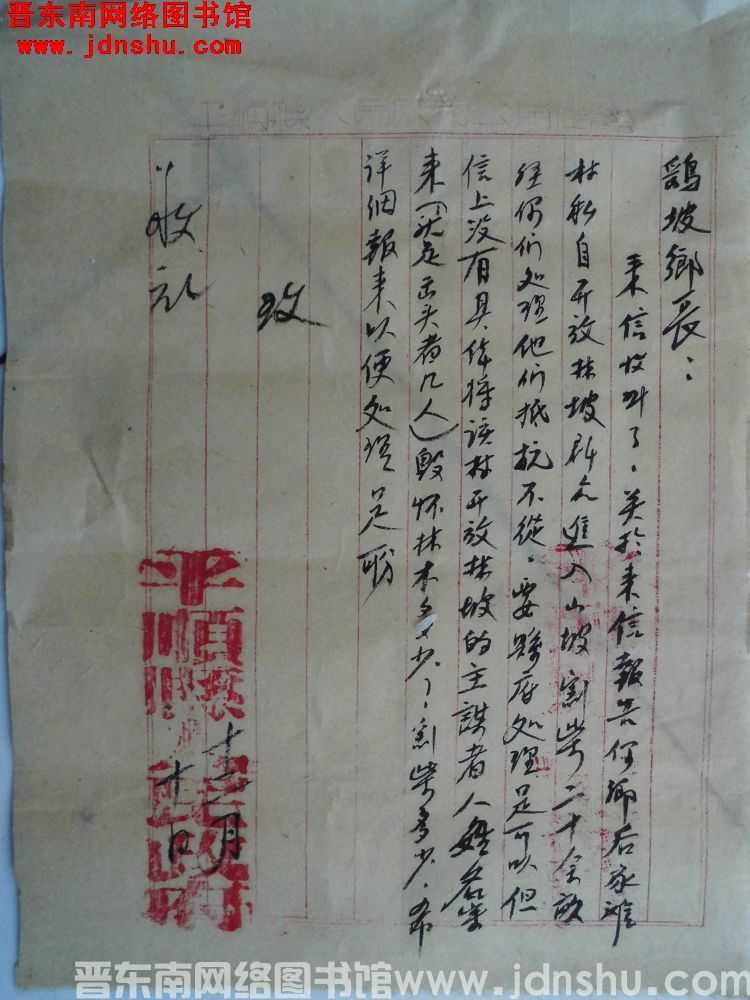 晋东南网络图书馆
www.jdnshu.com
鷄坡鄉長：
来信收叫了。关於来信報告你鄉后家滩
村私自开放林坡群众進入山坡割柴二十余畝
经你们处理他们抵抗不從。要縣府处理是可以但
信上没有具体将该村开放林坡的主謀者人姓名
来（头定出头者几人）毁怀林木多少了，割柴多少。希
详细報来以便处理是盼
致
敬礼
平順縣人民政府
十二月
十日
晋东南网络图书馆www.jdnshu.com